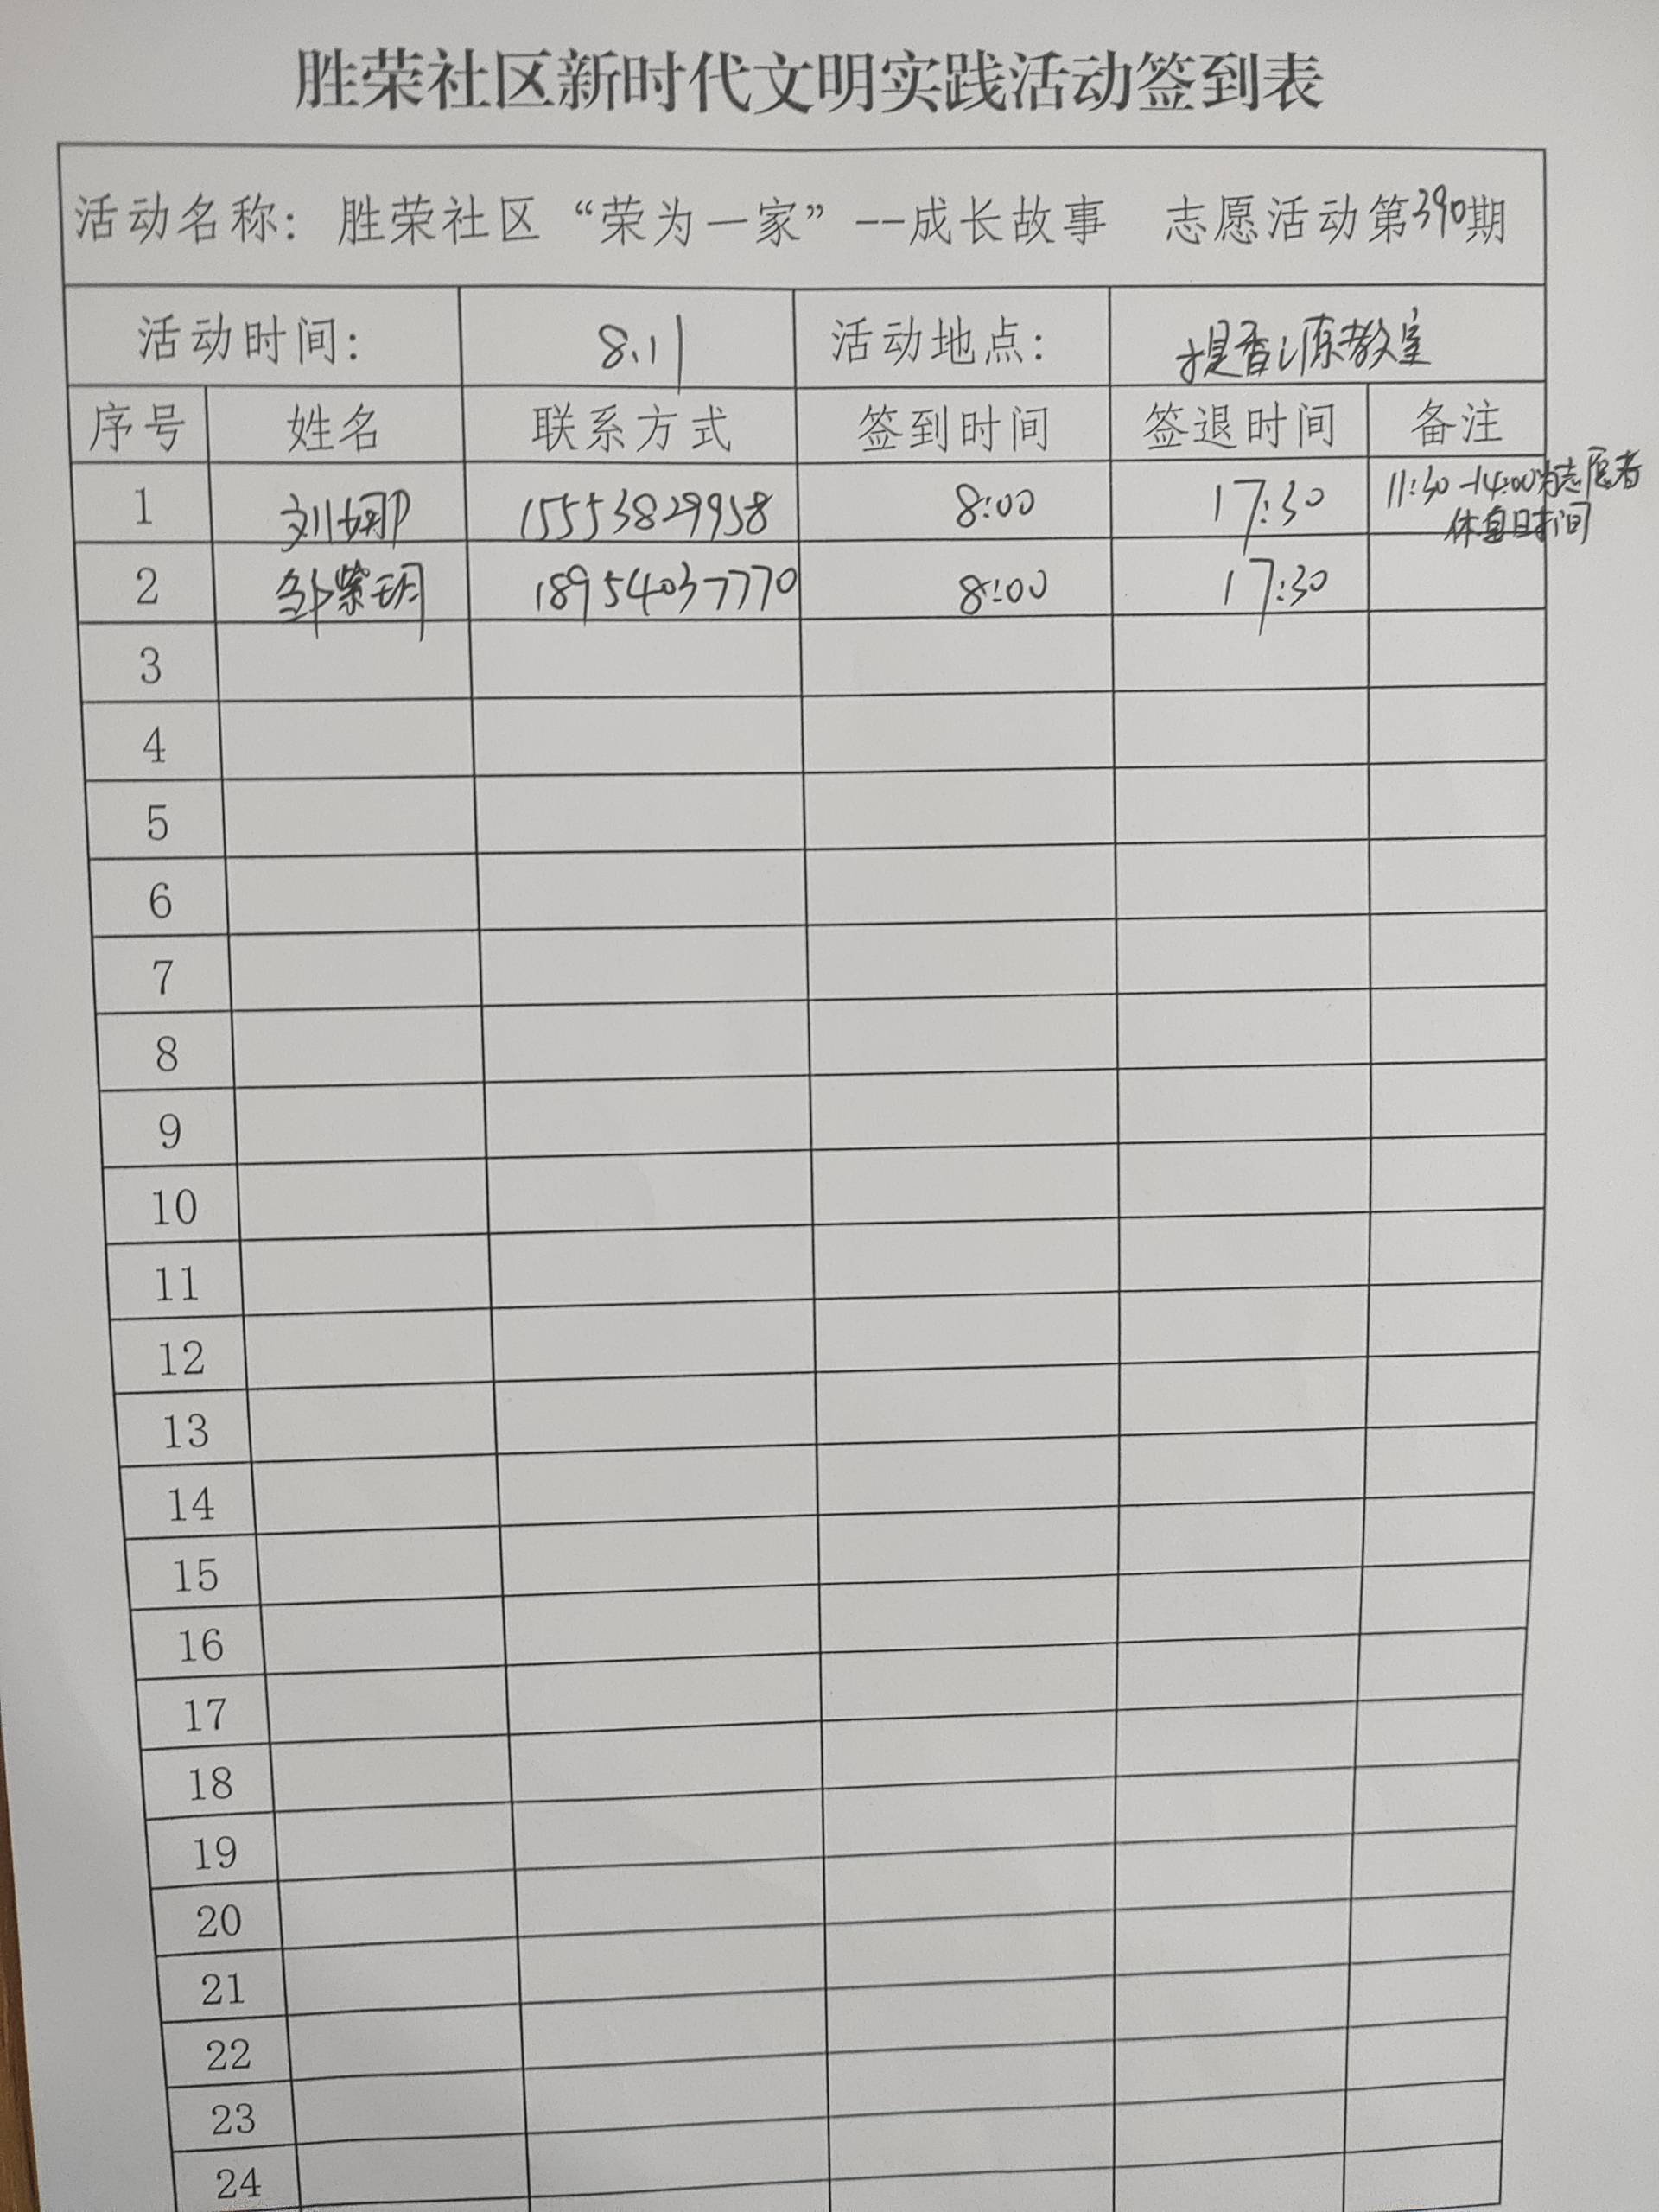 胜荣社区新时代文明实践活动签到表
活动名称：胜荣社区“荣为一家”--成长故事 志愿活动第390期
活动时间： 8.11 活动地点： 提香溪源教室
序号 姓名 联系方式 签到时间 签退时间 备注
1 刘娜 15553829958 8:00 17:30 11:30-14:00为志愿者
休息时间
2 邹紫玥 18954037770 8:00 17:30
3
4
5
6
7
8
9
10
11
12
13
14
15
16
17
18
19
20
21
22
23
24